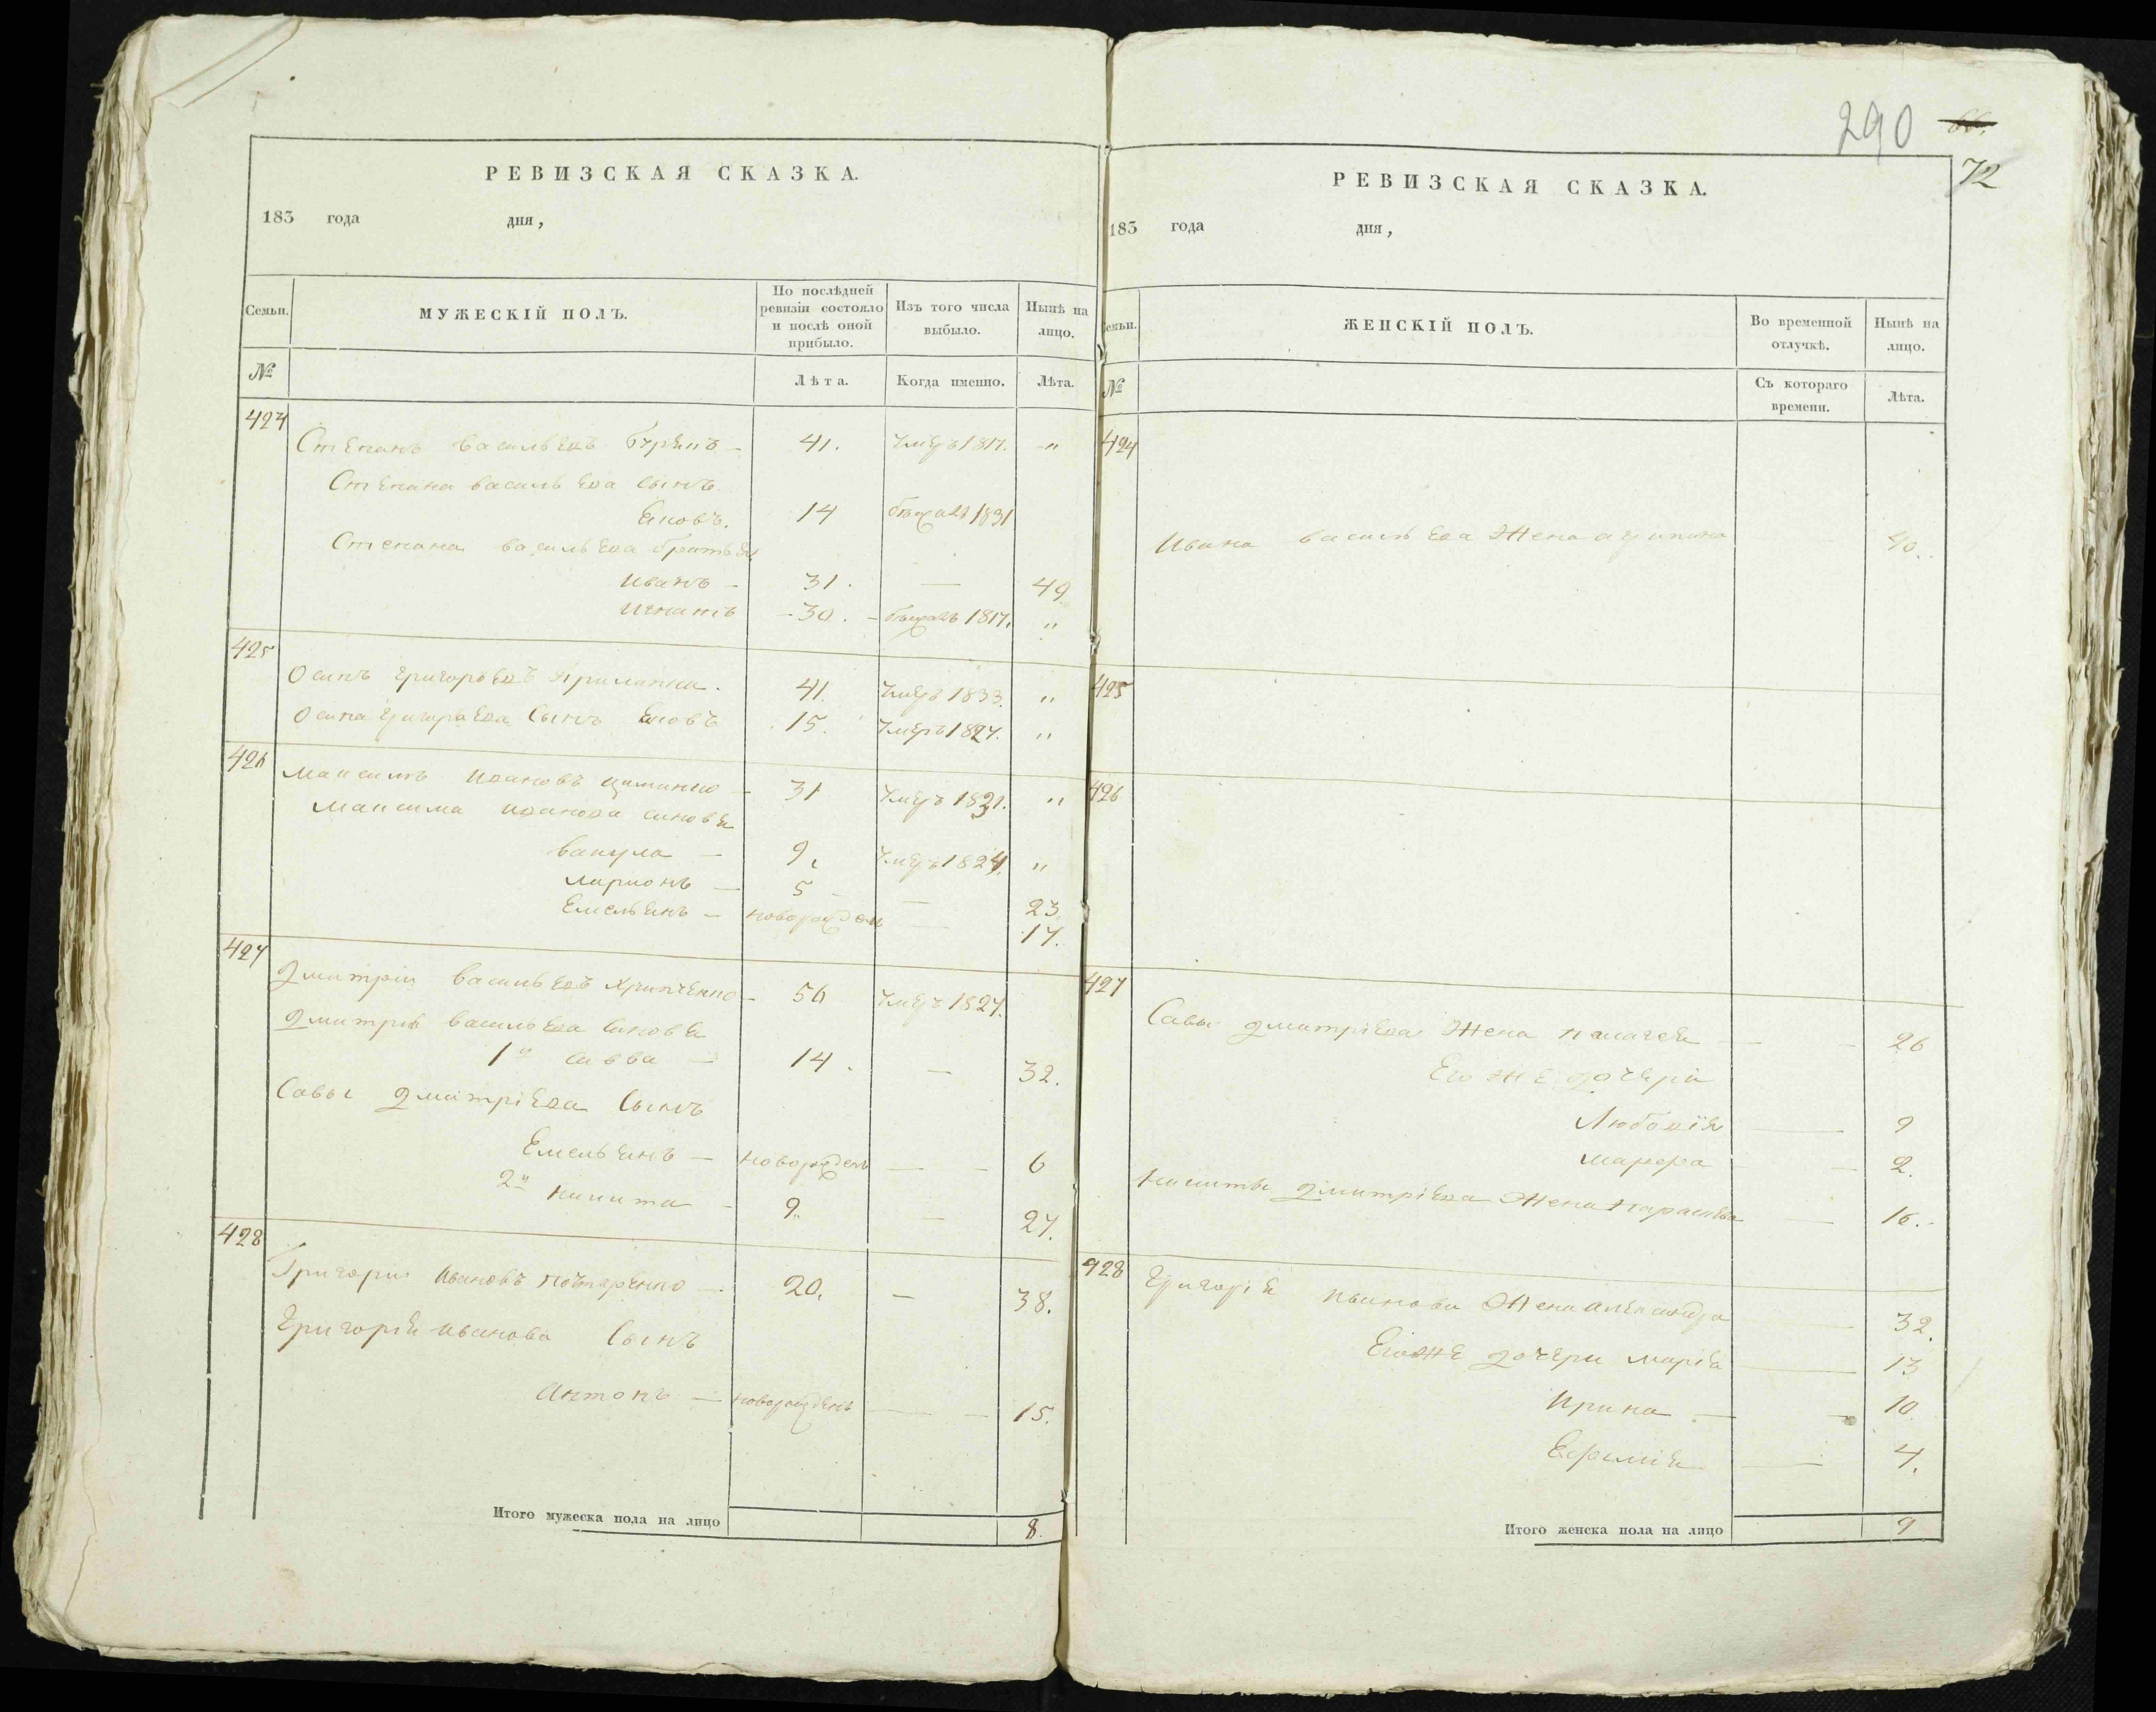 290
66.
72
РЕВИЗСКАЯ СКАЗКА.
183 года дня,
Семьи. МУЖЕСКІЙ ПОЛЪ. По послѣдней ревизіи состояло и послѣ оной прибыло. Изъ того числа выбыло. Нынѣ на лицо.
№ Лѣта. Когда именно. Лѣта.
424
Степанъ Васильевъ 41. умеръ 1817. "
Степана Васильева сынъ
Яковъ. 14 бѣжалъ 1831
Степана Васильева братья
Иванъ — 31. — 49
Игнатъ — 30. — бѣжалъ 1817. "
425
Осипъ Григорьевъ 41. умеръ 1833. "
Осипа Григорьева сынъ Яковъ 15. умеръ 1827. "
426
Максимъ Ивановъ — 31 умеръ "
Максима Иванова синовя
Вакула — 9. умеръ 1824. "
Ларионъ — 5 — — 23.
Емельянъ — новорожденъ — 17.
427
Дмитрій Васильевъ Хрипченко — 56 умеръ 1827.
Дмитрія Васильева синовя
1й Савва — 14. — 32.
Савы Дмитріева сынъ
Емельянъ — новорожденъ — — 6
2й Никита — 9. — 27.
428
Григорій Ивановъ — 20. — 38.
Григорія Иванова сынъ
Антонъ — новорожденъ — — 15.
Итого мужеска пола на лицо 8.
РЕВИЗСКАЯ СКАЗКА.
183 года дня,
Семьи. ЖЕНСКІЙ ПОЛЪ. Во временной отлучкѣ. Нынѣ на лицо.
№ Съ котораго времени. Лѣта.
424
Ивана Васильева жена Агрипина 40.
425
426
427
Савы Дмитріева жена Пелагея — — 26
Его же дочери
Любовія — 9
Марфа — — 2.
Никиты Дмитріева жена Параскева — 16.
428
Григорія Иванова жена Александра — 32.
Его же дочери Марія — 13
Ирина — — 10
Ефимія — 4.
Итого женска пола на лицо 9